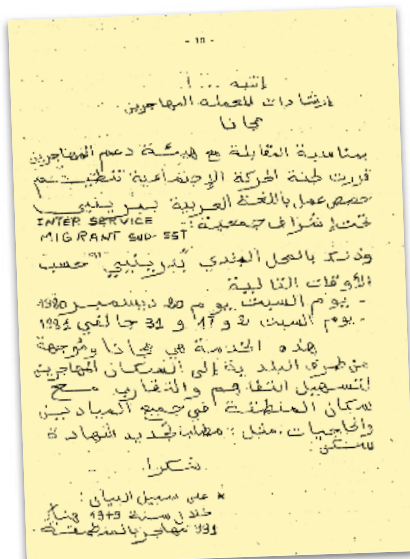 - 10 -
إنتبه ... !
إرشادات للعملة المهاجرين
مجانا
بمناسبة المقابلة مع هيئة دعم المهاجرين
قررت لجنة الحركة الإجتماعية تنظيم
حصص عمل باللغة العربية
تحت إشراف جمعية: INTER SERVICE
MIGRANT SUD-EST
وذلك بالمحل البلدي حسب
الأوقات التالية
- يوم السبت يوم 20 ديسمبر 1980
- يوم السبت و 17 و 31 جانفي 1981
هذه الخدمة هي مجانا وموجهة
من طرف البلدية إلى السكان المهاجرين
لتسهيل التفاهم والتقارب مع
سكان المنطقة في جميع الميادين
والحاجيات مثل: مطلب تجديد شهادة
سكنى.
شكرا.
* على سبيل البيان:
خلال سنة 1979 هناك
931 مهاجر بالمنطقة